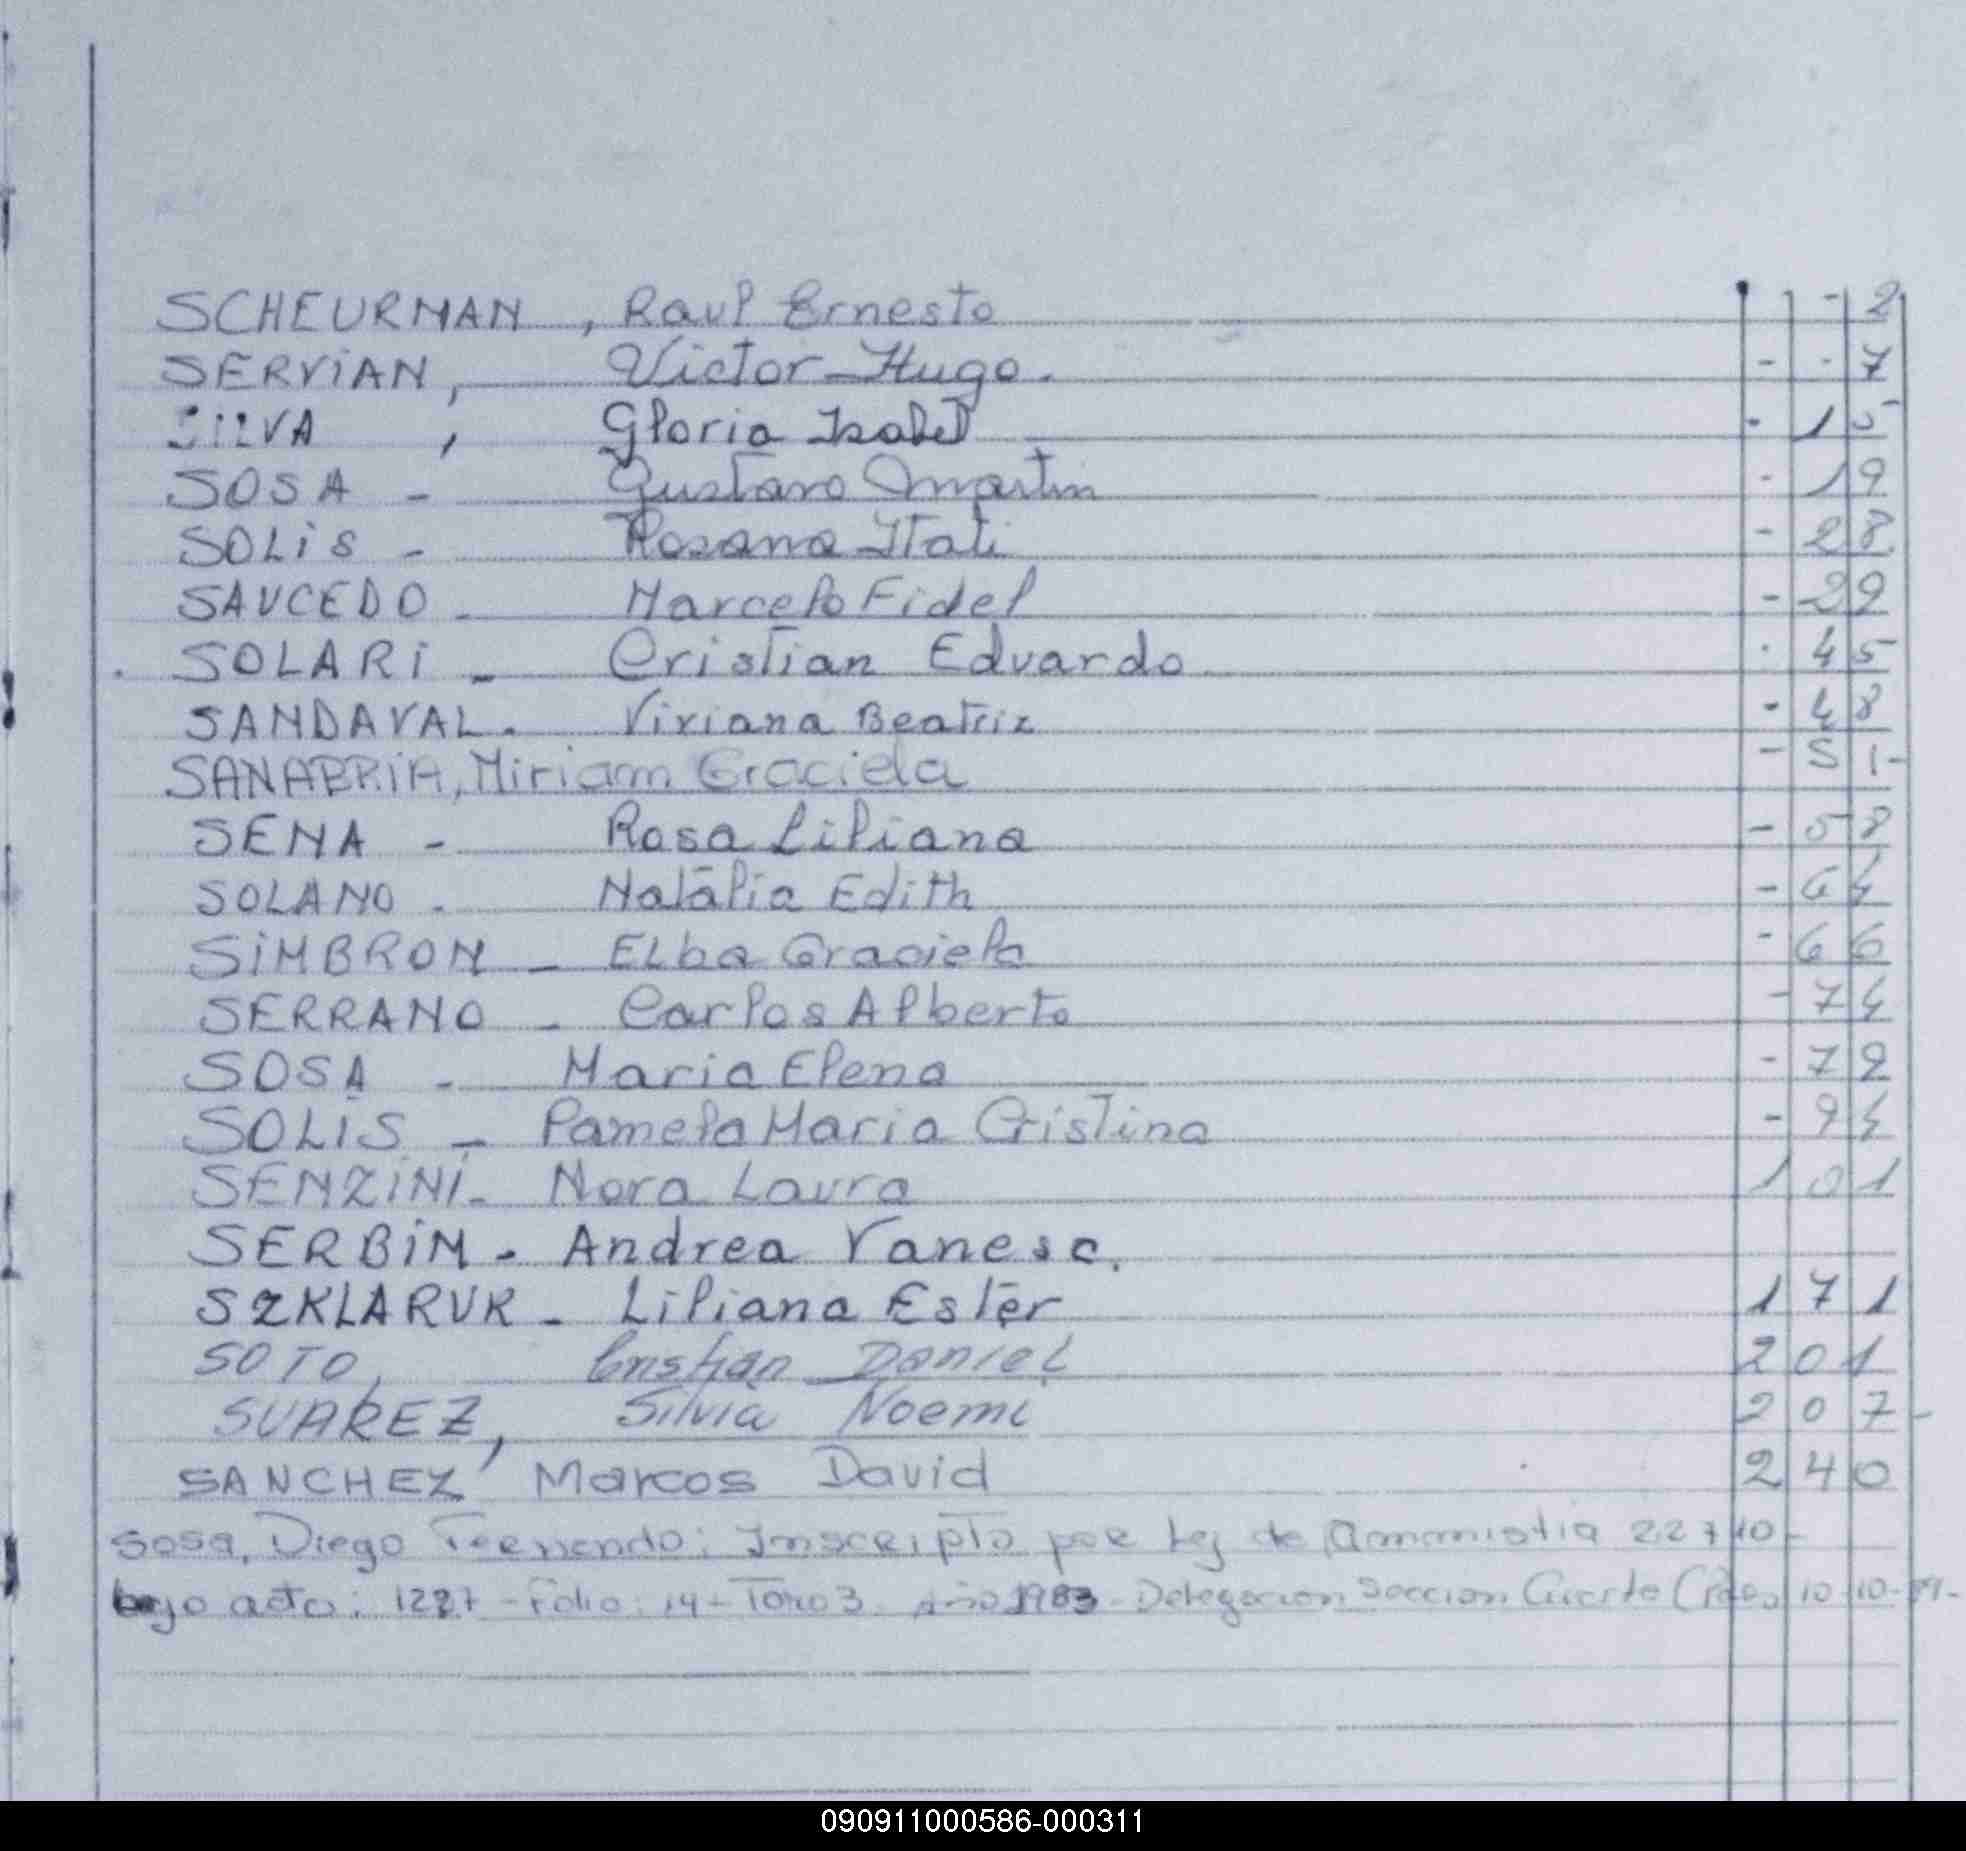 SCHEURMAN, Raul Ernesto - 2
SERVIAN, Victor Hugo. - - 7
SILVA, Gloria Isabel - 1 5
SOSA - Gustavo Martin - 1 9
SOLIS - Rosana Itati - 2 8
SAUCEDO - Marcelo Fidel - 2 9
SOLARI - Cristian Eduardo - 4 5
SANDAVAL - Viviana Beatriz - 4 8
SANABRIA, Miriam Graciela - 5 1 -
SENA - Rosa Liliana - 5 8
SOLANO - Natalia Edith - 6 4
SIMBRON - Elba Graciela - 6 6
SERRANO - Carlos Alberto - 7 4
SOSA - Maria Elena - 7 9
SOLIS - Pamela Maria Cristina - 9 4
SENZINI - Nora Laura 1 0 1
SERBIN - Andrea Vanesa.
SZKLARUK - Liliana Ester 1 7 1
SOTO, Cristian Daniel 2 0 1
SUAREZ, Silvia Noemi 2 0 7 -
SANCHEZ, Marcos David 2 4 0
Sosa, Diego Fernando: Inscripto por Ley de Ammistia 22710 -
bajo acta: 1227 - Folio: 14 - Tomo 3 - Año 1983 - Delegacion Seccion Cuarta 10-10-
090911000586-000311